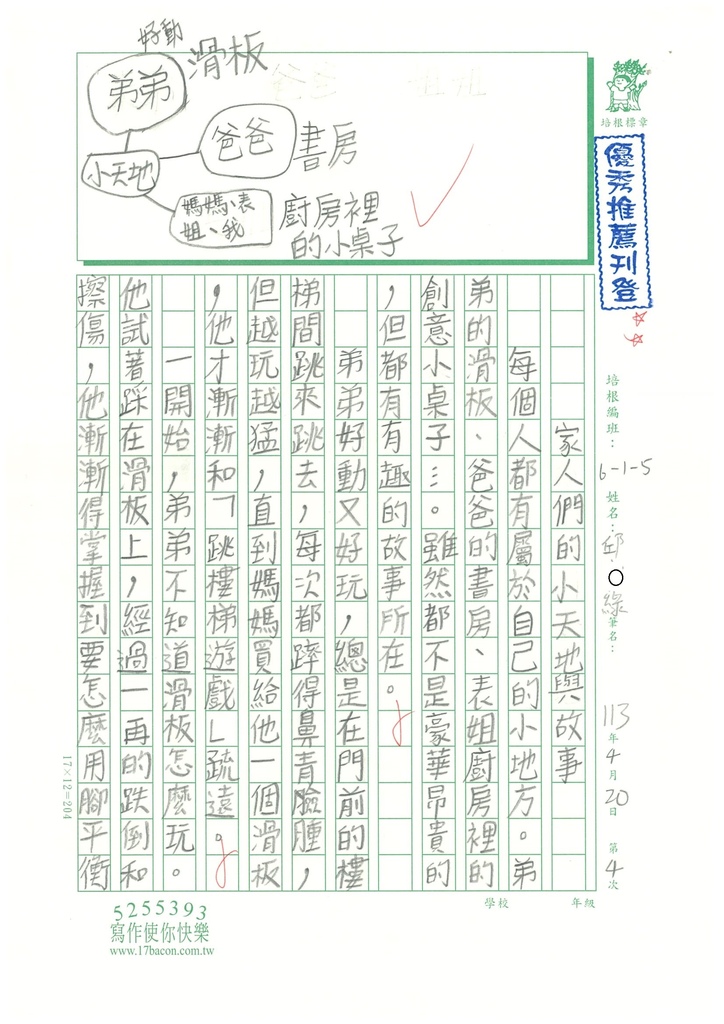 好動
弟弟
滑板
小天地
爸爸
書房
媽媽、表
姐、我
廚房裡
的小桌子
培根標章
優秀推薦刊登
培根編班：6-1-5
姓名：邱○綠
筆名：
113年4月20日
第4次
學校
年級
家人們的小天地與故事
每個人都有屬於自己的小地方。弟
弟的滑板、爸爸的書房、表姐廚房裡的
創意小桌子…。雖然都不是豪華昂貴的
，但都有有趣的故事所在。
弟弟好動又好玩，總是在門前的樓
梯間跳來跳去，每次都踤得鼻青臉腫，
但越玩越猛，直到媽媽買給他一個滑板
，他才漸漸和「跳樓梯遊戲」疏遠。
一開始，弟弟不知道滑板怎麼玩。
他試著踩在滑板上，經過一再的跌倒和
擦傷，他漸漸得掌握到要怎麼用腳平衡
17×12=204
5255393
寫作使你快樂
www.17bacon.com.tw